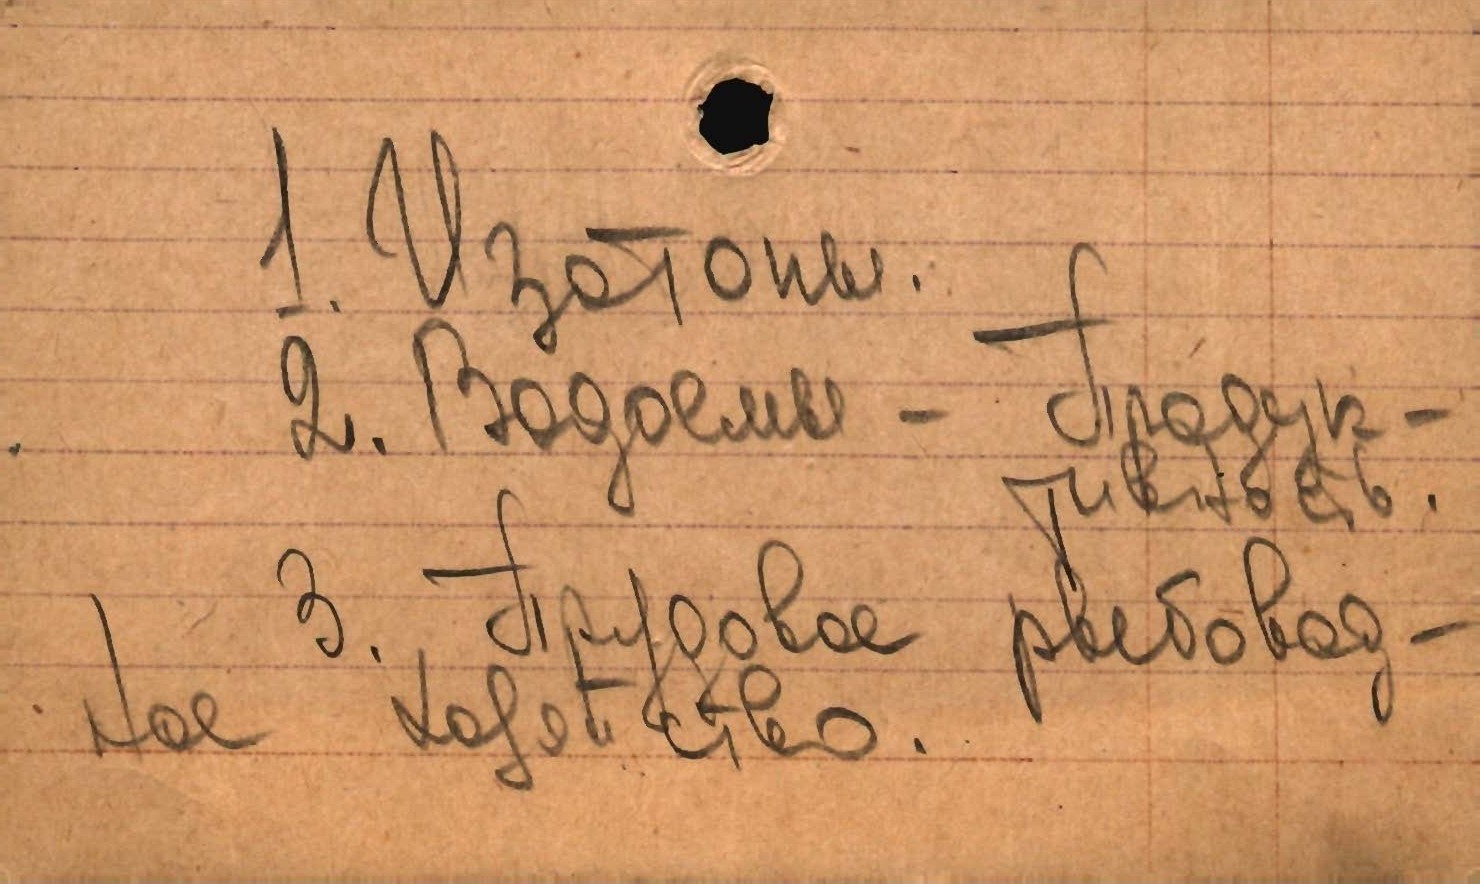 1. Изатоны.
2. Водоемы - Продук-
тивность.
3. Прудовое рыбовод-
ное хозяйство.